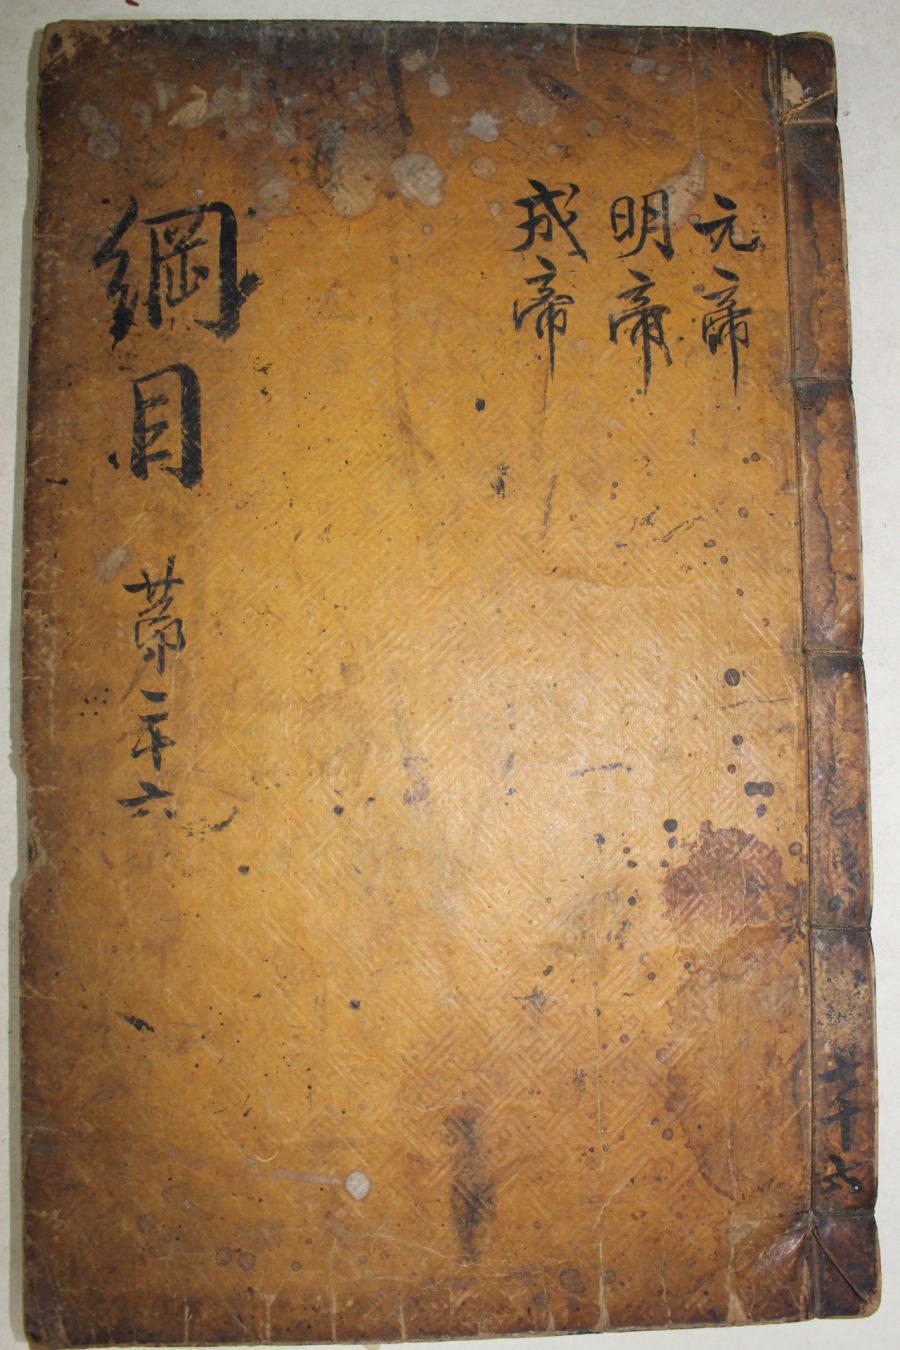 元帝
明帝
成帝
綱目 第二十六